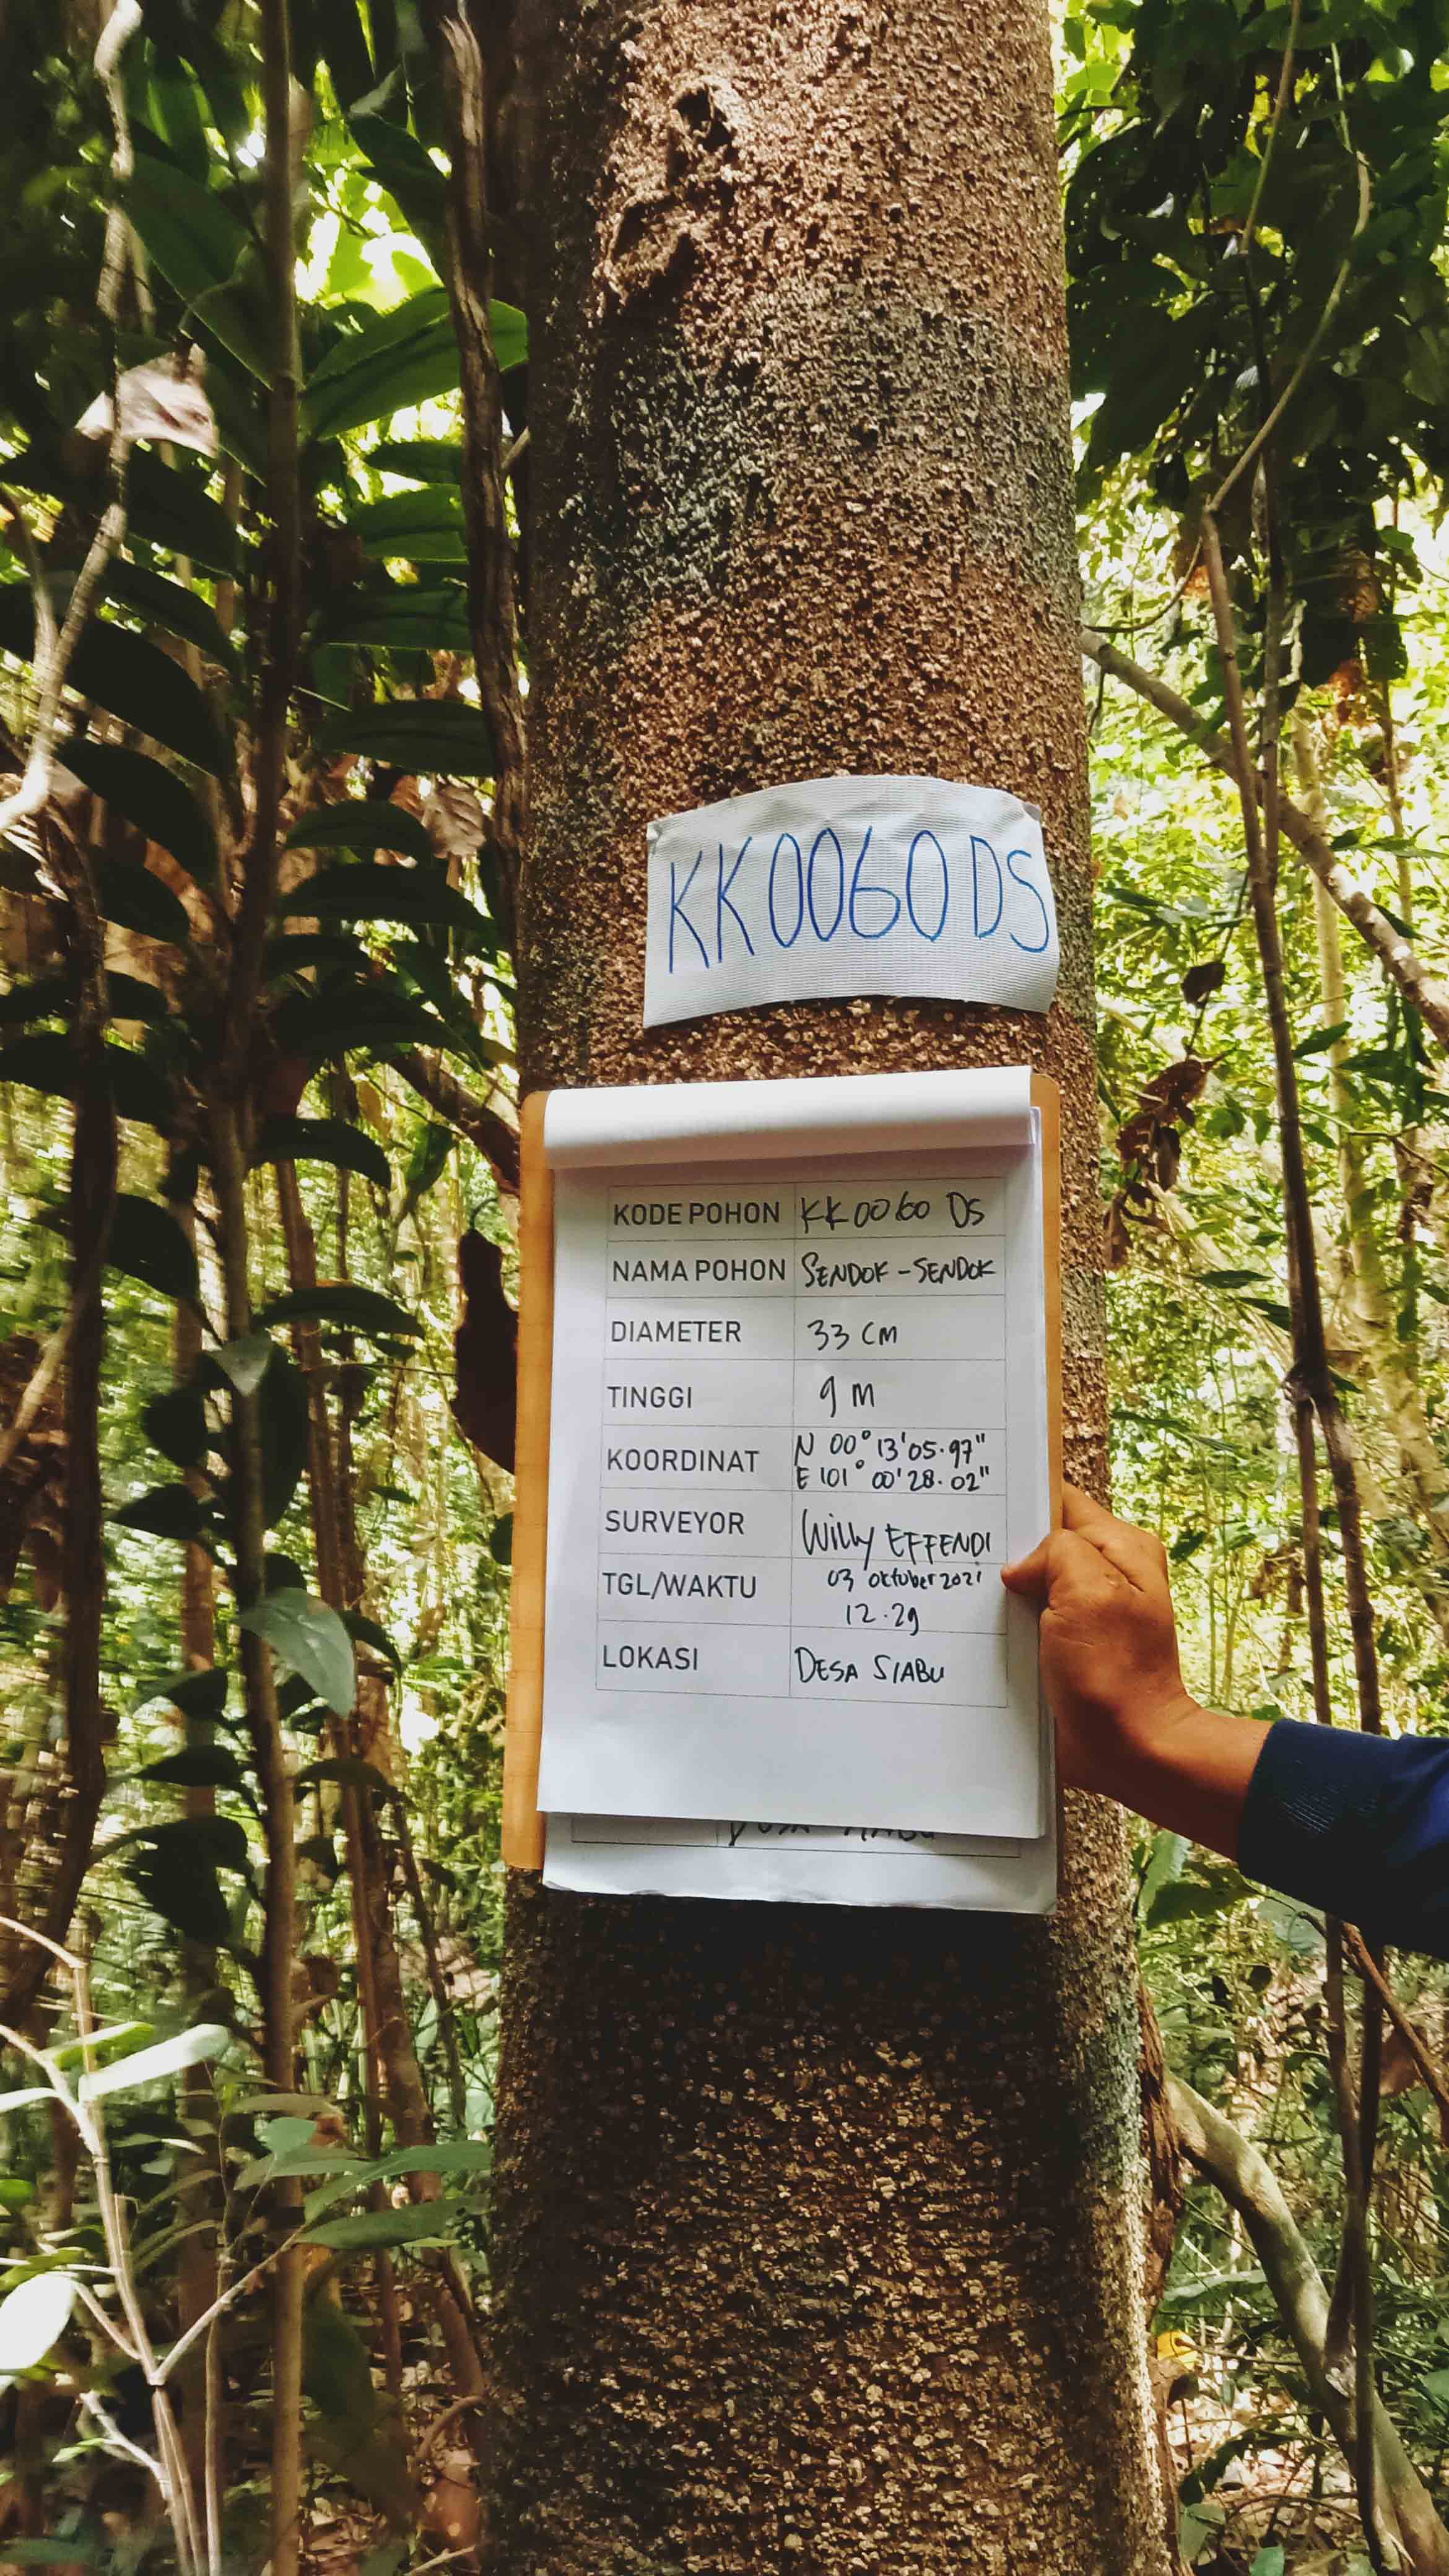 KK0060 DS
KODE POHON KK0060 DS
NAMA POHON SENDOK - SENDOK
DIAMETER 33 CM
TINGGI 9 M
KOORDINAT N 00° 13' 05.97"
E 101° 00' 28.02"
SURVEYOR Willy EFFENDI
TGL/WAKTU 03 oktober 2021
12.29
LOKASI DESA SIABU